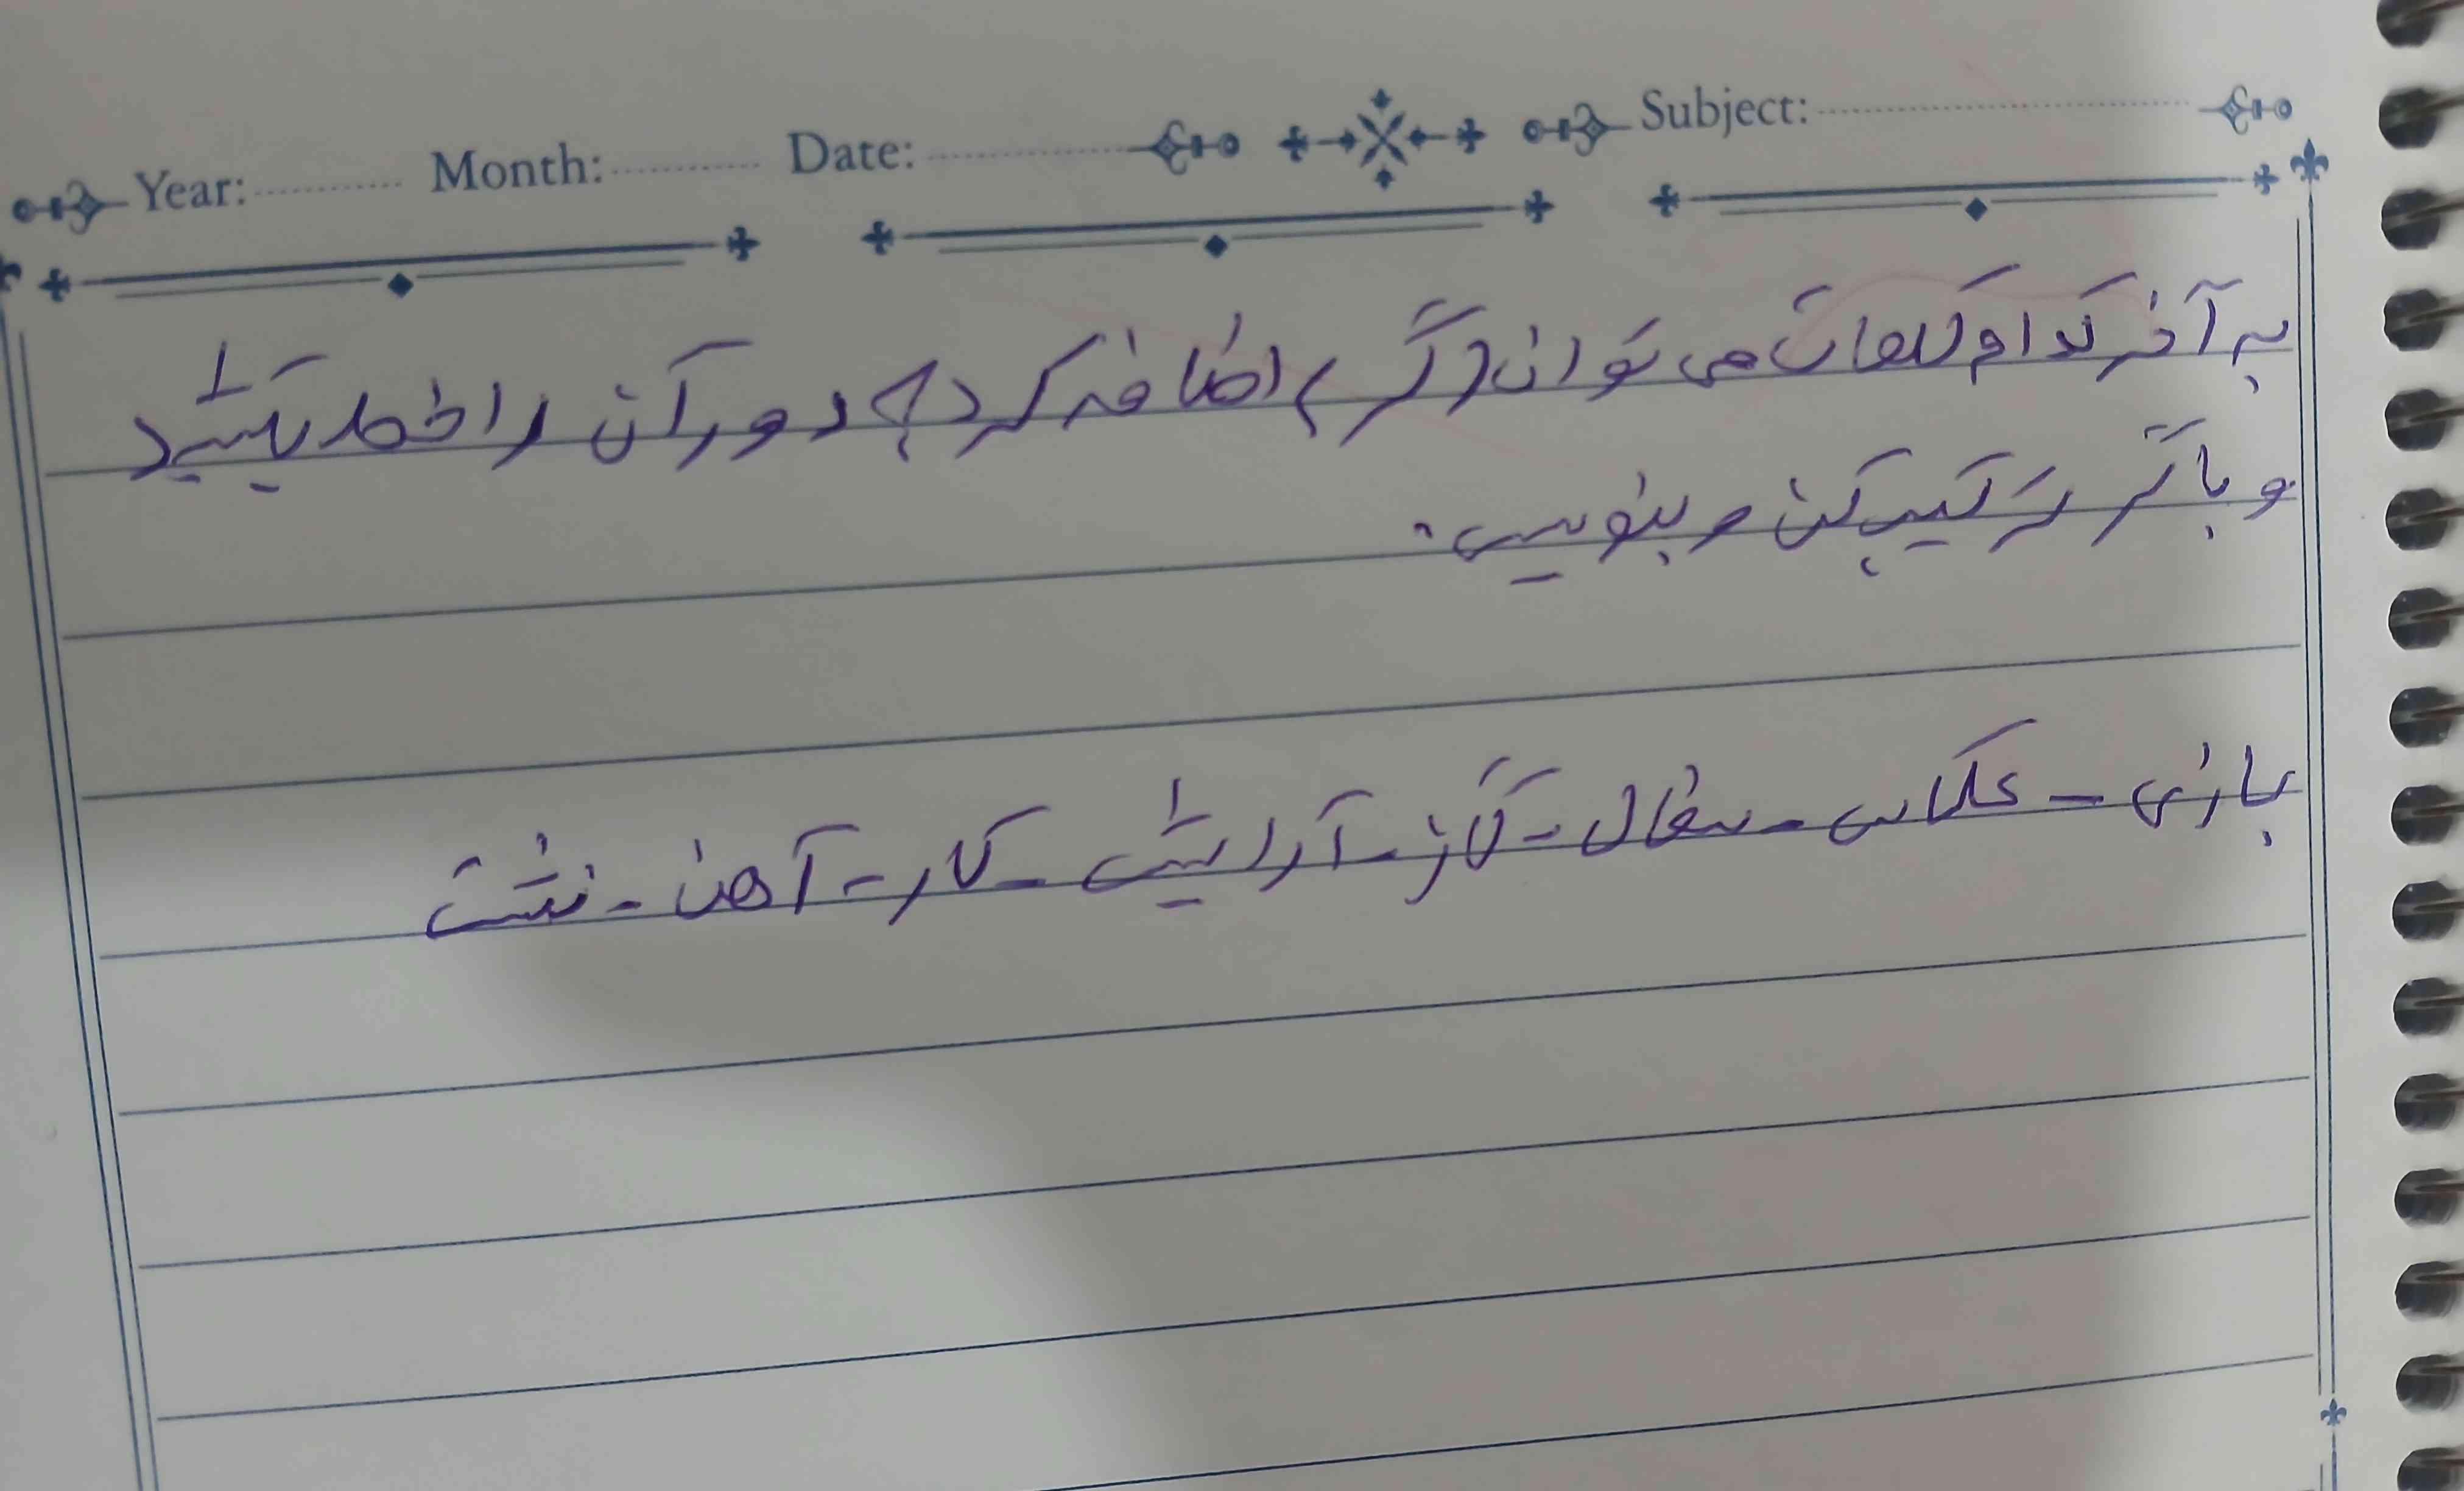 Year: Month: Date: Subject:
به آخر کدام کلمات می توان (گر) اضافه کرد؟ دور آن را خط بکشید
و با گر ترکیب کن و بنویس.
بازی - عکاس - سفال - گاز - آرایش - کار - آهن - نشت